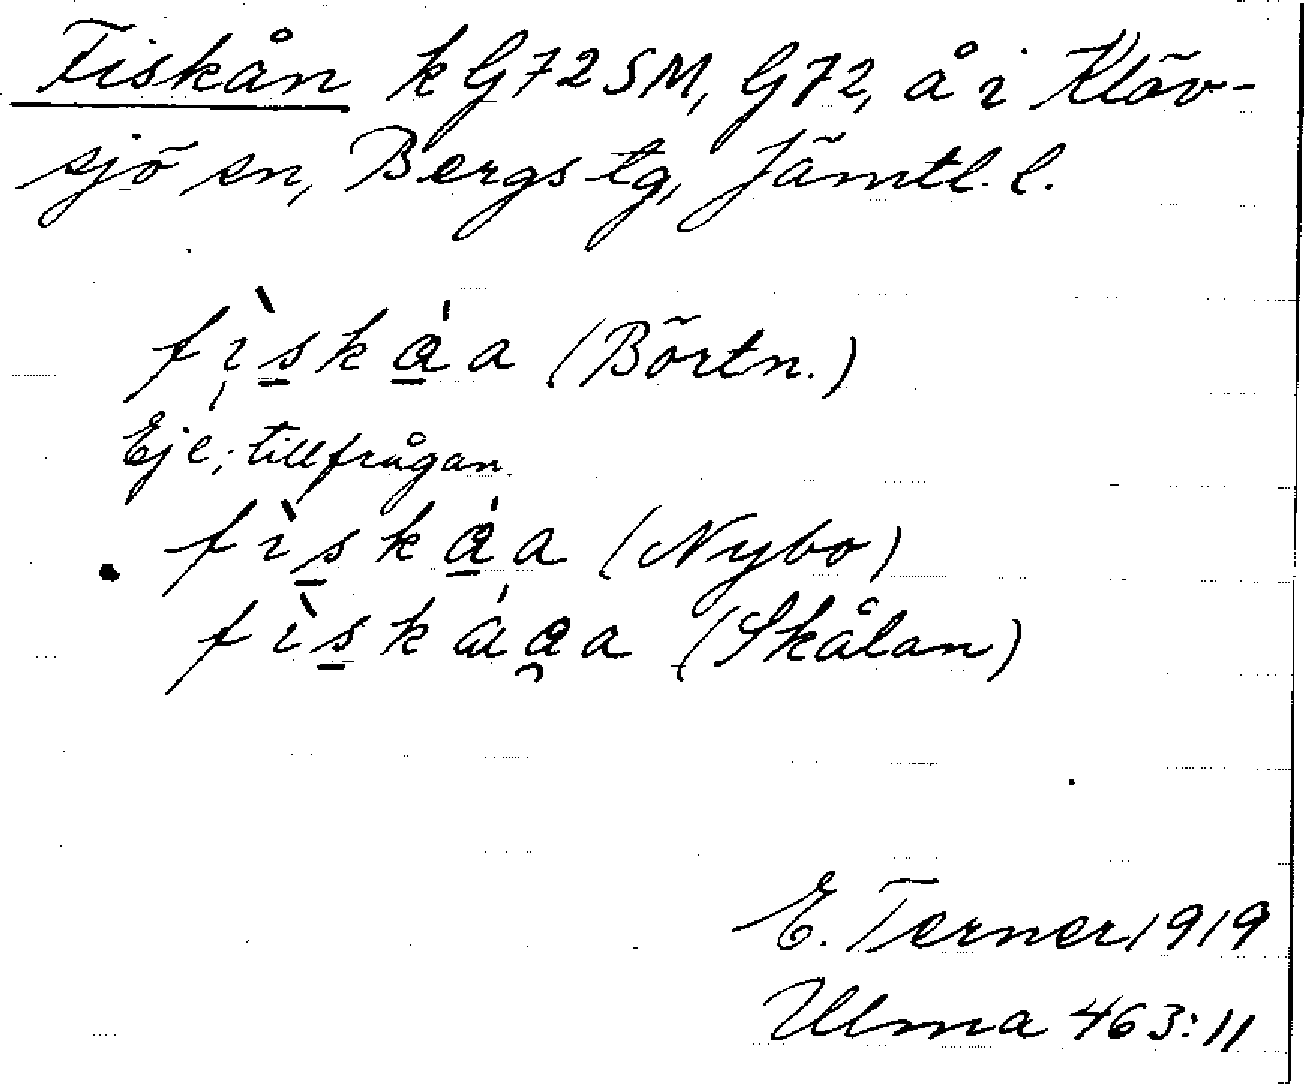 Fiskån k G72SM, G72, å i Klöv-
sjö sn, Bergs tg, Jämtl. l.
fìskáa (Börtn.)
Ej è, tillfrågan.
fìskáa (Nybo)
fìskáaa (Skålan)
E. Terner 1919
Ulma 463:11